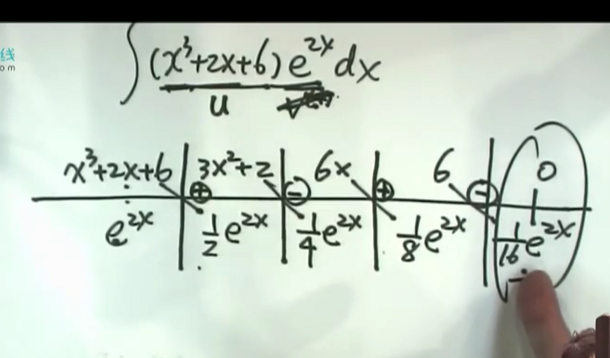 线
om
∫(x³+2x+6)e^{2x}dx
u
x³+2x+6 | 3x²+2 | 6x | 6 | 0
⊕ ⊖ ⊕ ⊖
e^{2x} | 1/2 e^{2x} | 1/4 e^{2x} | 1/8 e^{2x} | 1/16 e^{2x}